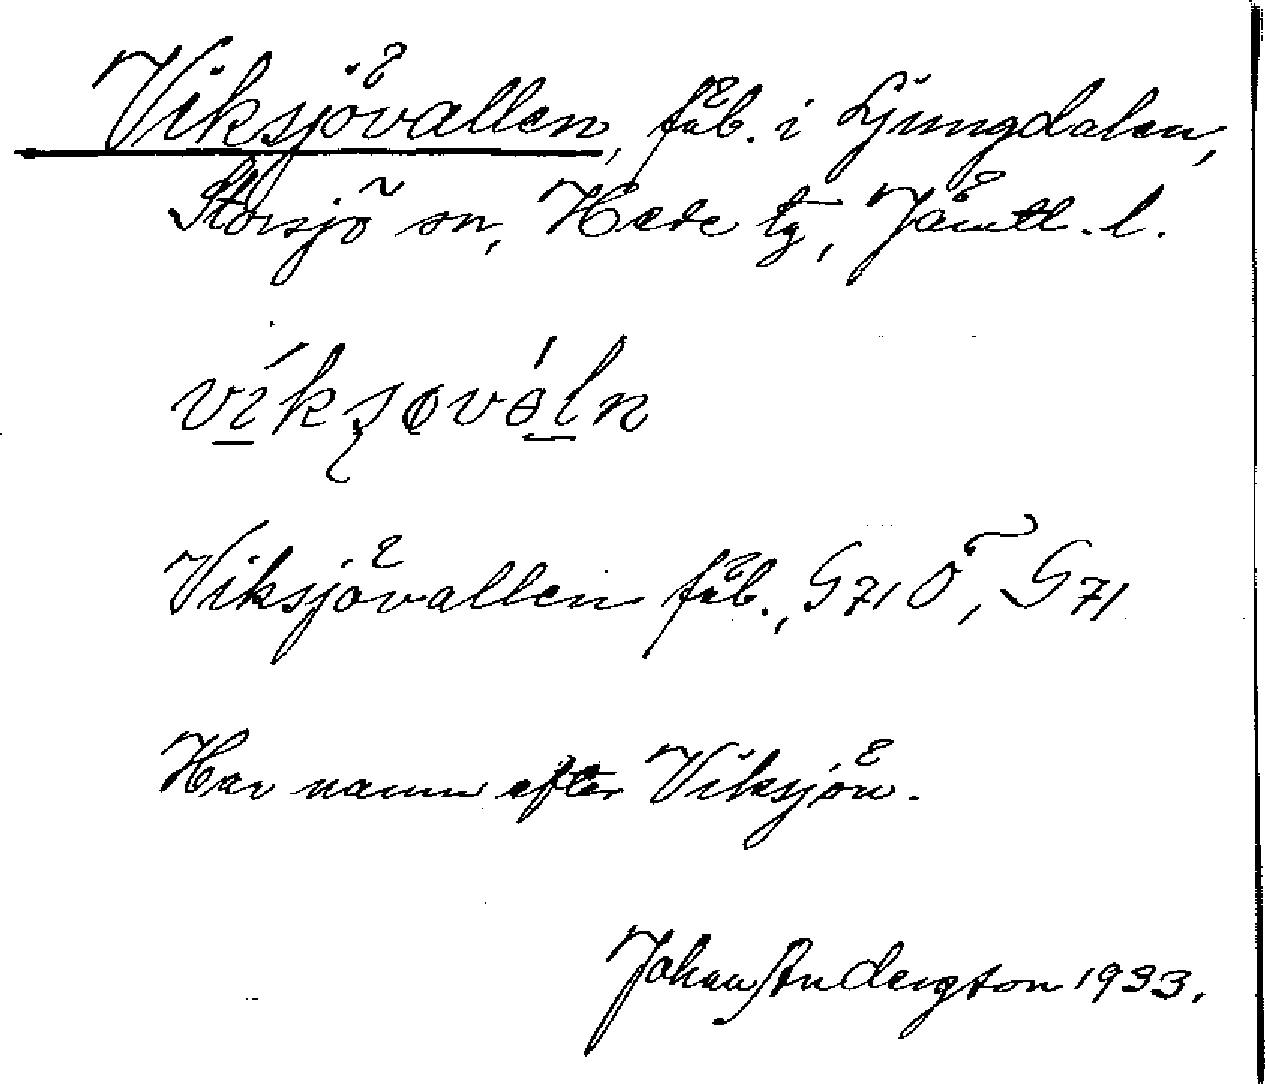 Viksjövallen, fäb. i Ljungdalen,
Storsjö sn, Hede tg, Jämtl. l.
víksøváln
Viksjövallen fäb., G 71 Ö, G 71
Har namn efter Viksjön.
Johan Andersson 1933.